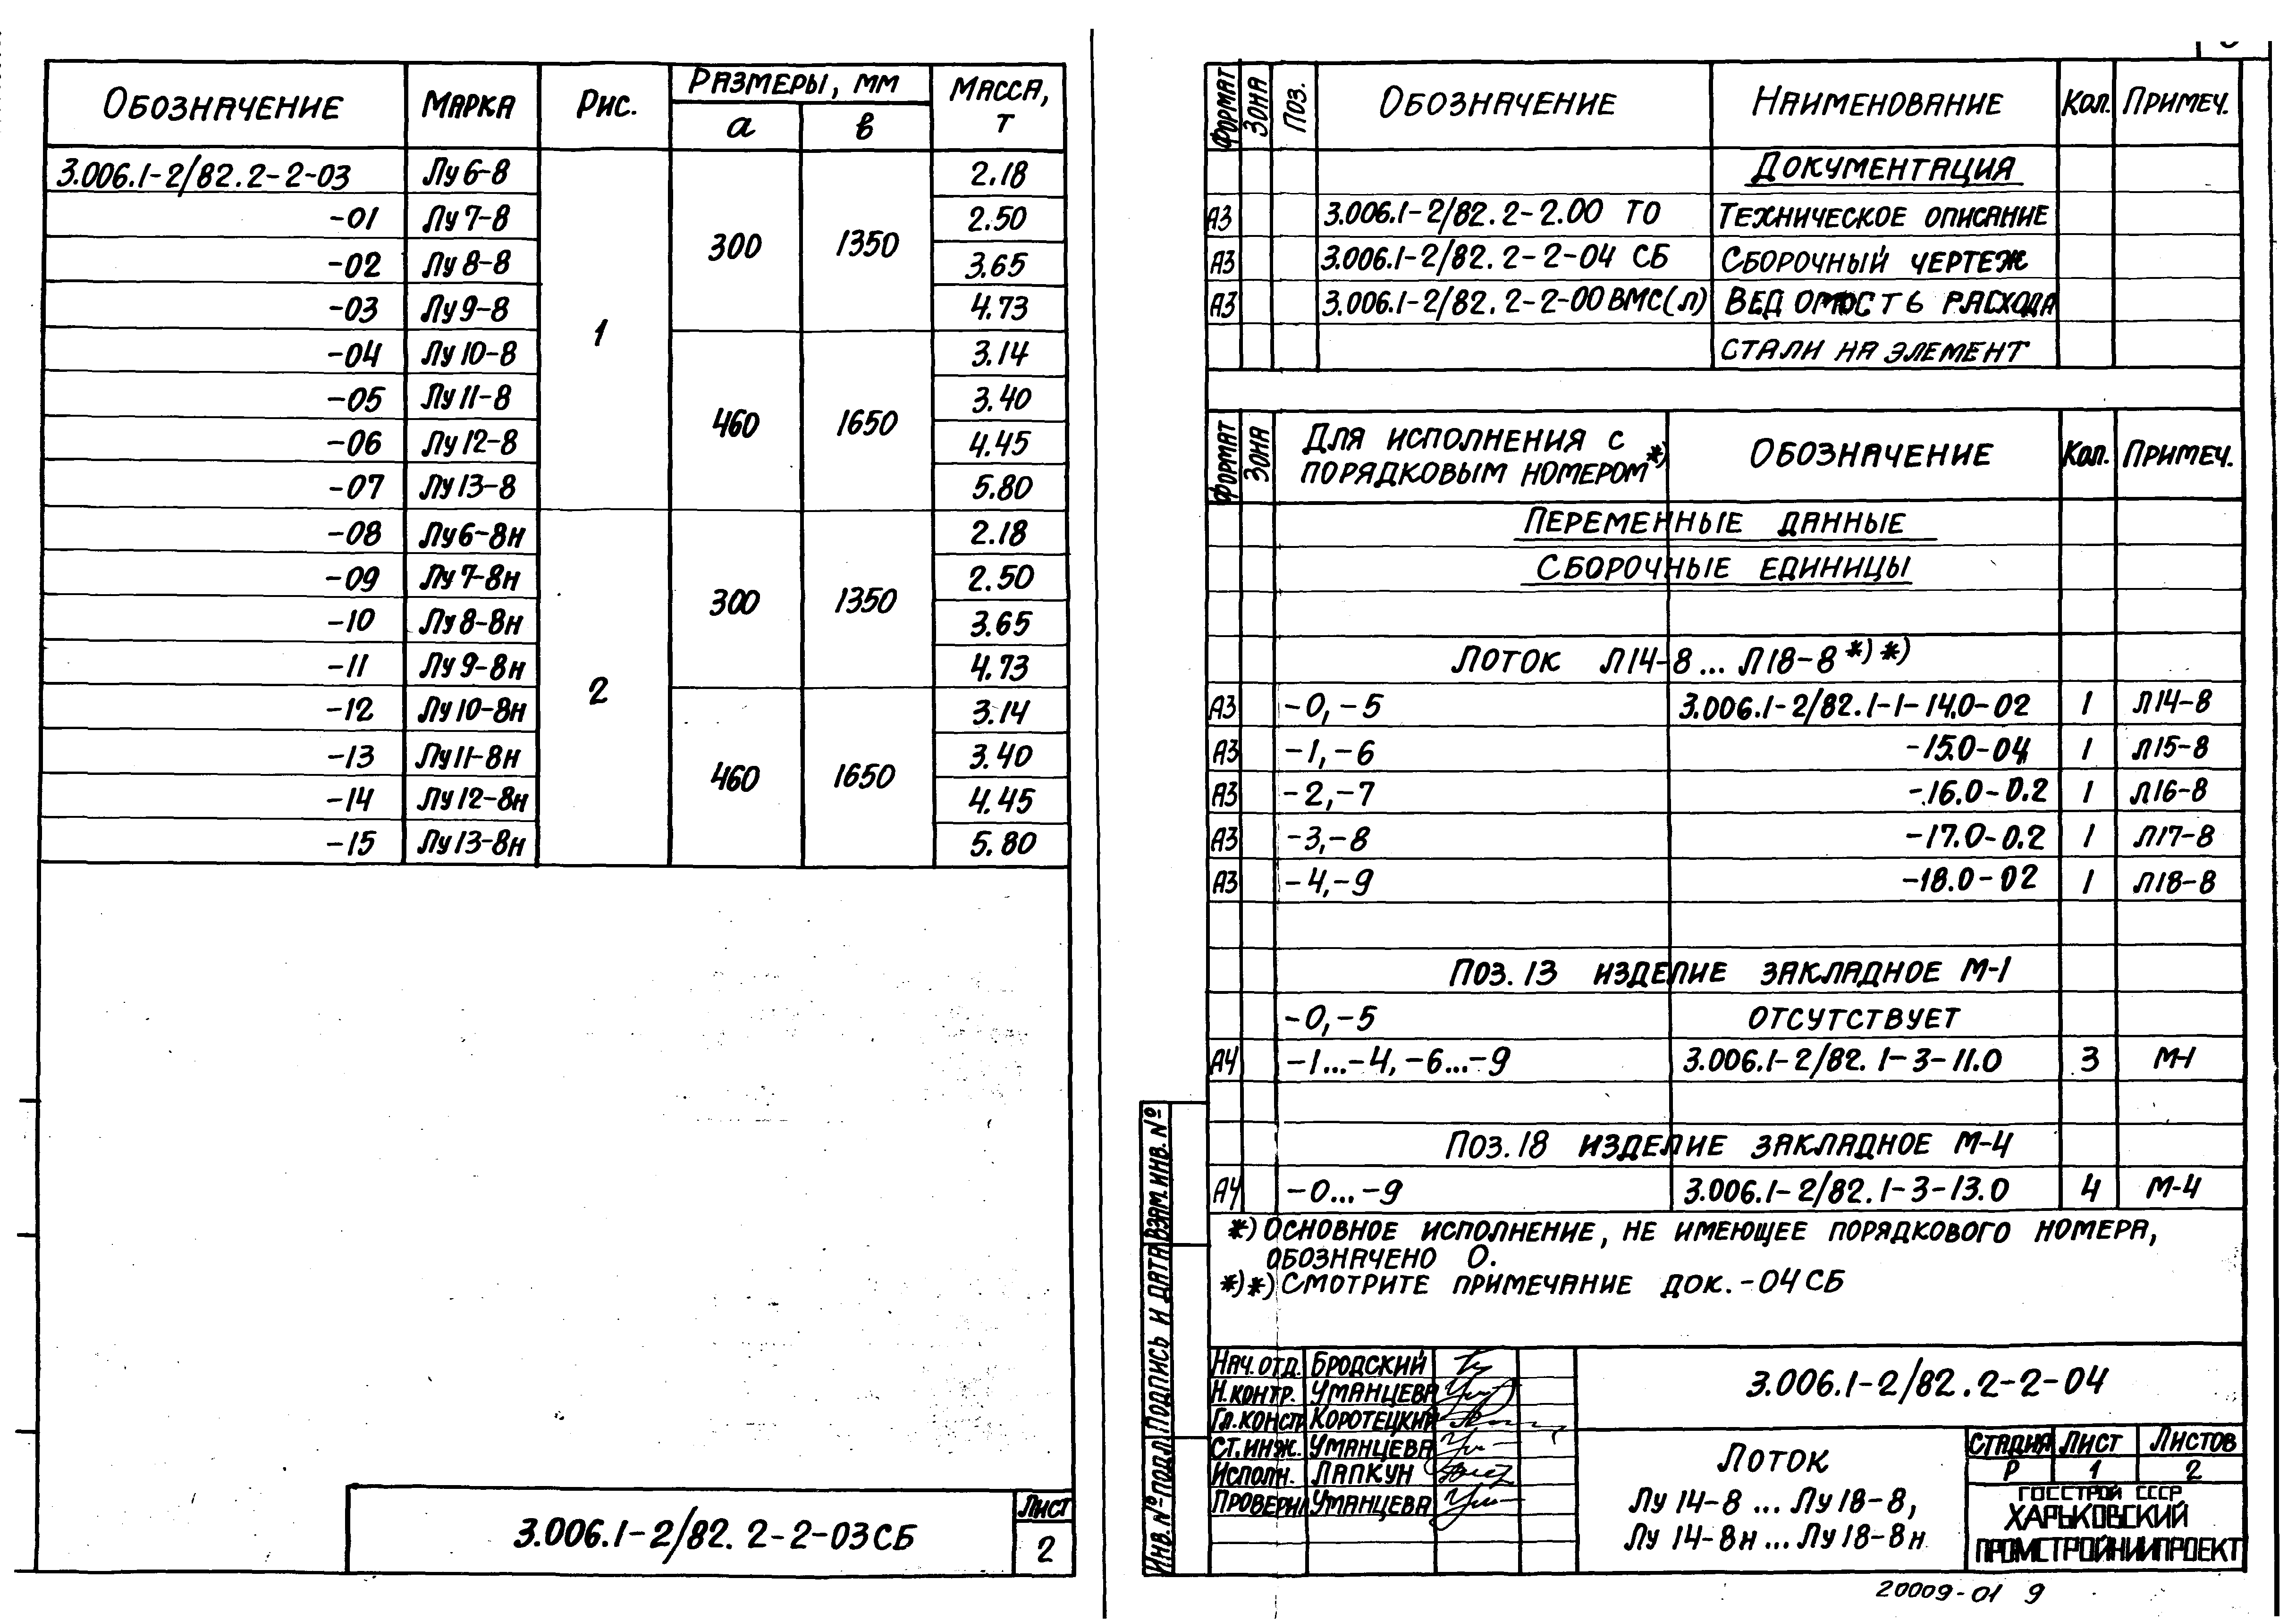 Обозначение | Марка | Рис. | Размеры, мм | Масса, т
а | в
3.006.1-2/82.2-2-03 | Лу 6-8 | 1 | 300 | 1350 | 2.18
-01 | Лу 7-8 | 2.50
-02 | Лу 8-8 | 3.65
-03 | Лу 9-8 | 4.73
-04 | Лу 10-8 | 460 | 1650 | 3.14
-05 | Лу 11-8 | 3.40
-06 | Лу 12-8 | 4.45
-07 | Лу 13-8 | 5.80
-08 | Лу 6-8н | 2 | 300 | 1350 | 2.18
-09 | Лу 7-8н | 2.50
-10 | Лу 8-8н | 3.65
-11 | Лу 9-8н | 4.73
-12 | Лу 10-8н | 460 | 1650 | 3.14
-13 | Лу 11-8н | 3.40
-14 | Лу 12-8н | 4.45
-15 | Лу 13-8н | 5.80
3.006.1-2/82.2-2-03СБ
Лист
2
Формат | Зона | Поз. | Обозначение | Наименование | Кол. | Примеч.
Документация
А3 | 3.006.1-2/82.2-2.00 ТО | Техническое описание
А3 | 3.006.1-2/82.2-2-04 СБ | Сборочный чертеж
А3 | 3.006.1-2/82.2-2-00 ВМС(л) | Ведомость расхода
стали на элемент
Формат | Зона | Для исполнения с порядковым номером *) | Обозначение | Кол. | Примеч.
Переменные данные
Сборочные единицы
Лоток Л14-8... Л18-8 *) *)
А3 | -0, -5 | 3.006.1-2/82.1-1-14.0-02 | 1 | Л14-8
А3 | -1, -6 | -15.0-04 | 1 | Л15-8
А3 | -2, -7 | -.16.0-0.2 | 1 | Л16-8
А3 | -3, -8 | -17.0-0.2 | 1 | Л17-8
А3 | -4, -9 | -18.0-02 | 1 | Л18-8
Поз. 13 изделие закладное М-1
-0, -5 | отсутствует
А4 | -1...-4, -6...-9 | 3.006.1-2/82.1-3-11.0 | 3 | М-1
Поз. 18 изделие закладное М-4
А4 | -0...-9 | 3.006.1-2/82.1-3-13.0 | 4 | М-4
*) Основное исполнение, не имеющее порядкового номера,
обозначено 0.
*)*) Смотрите примечание док. -04 СБ
Взам. инв. №
Подпись и дата
Инв. № подл.
Нач. отд. | Бродский
Н. контр. | Уманцева
Гл. констр | Коротецкий
Ст. инж. | Уманцева
Исполн. | Лапкун
Проверил | Уманцева
3.006.1-2/82.2-2-04
Лоток
Лу 14-8 ... Лу 18-8,
Лу 14-8н ... Лу 18-8н
Стадия | Лист | Листов
Р | 1 | 2
Госстрой СССР
Харьковский
Промстройниипроект
20009-01 9